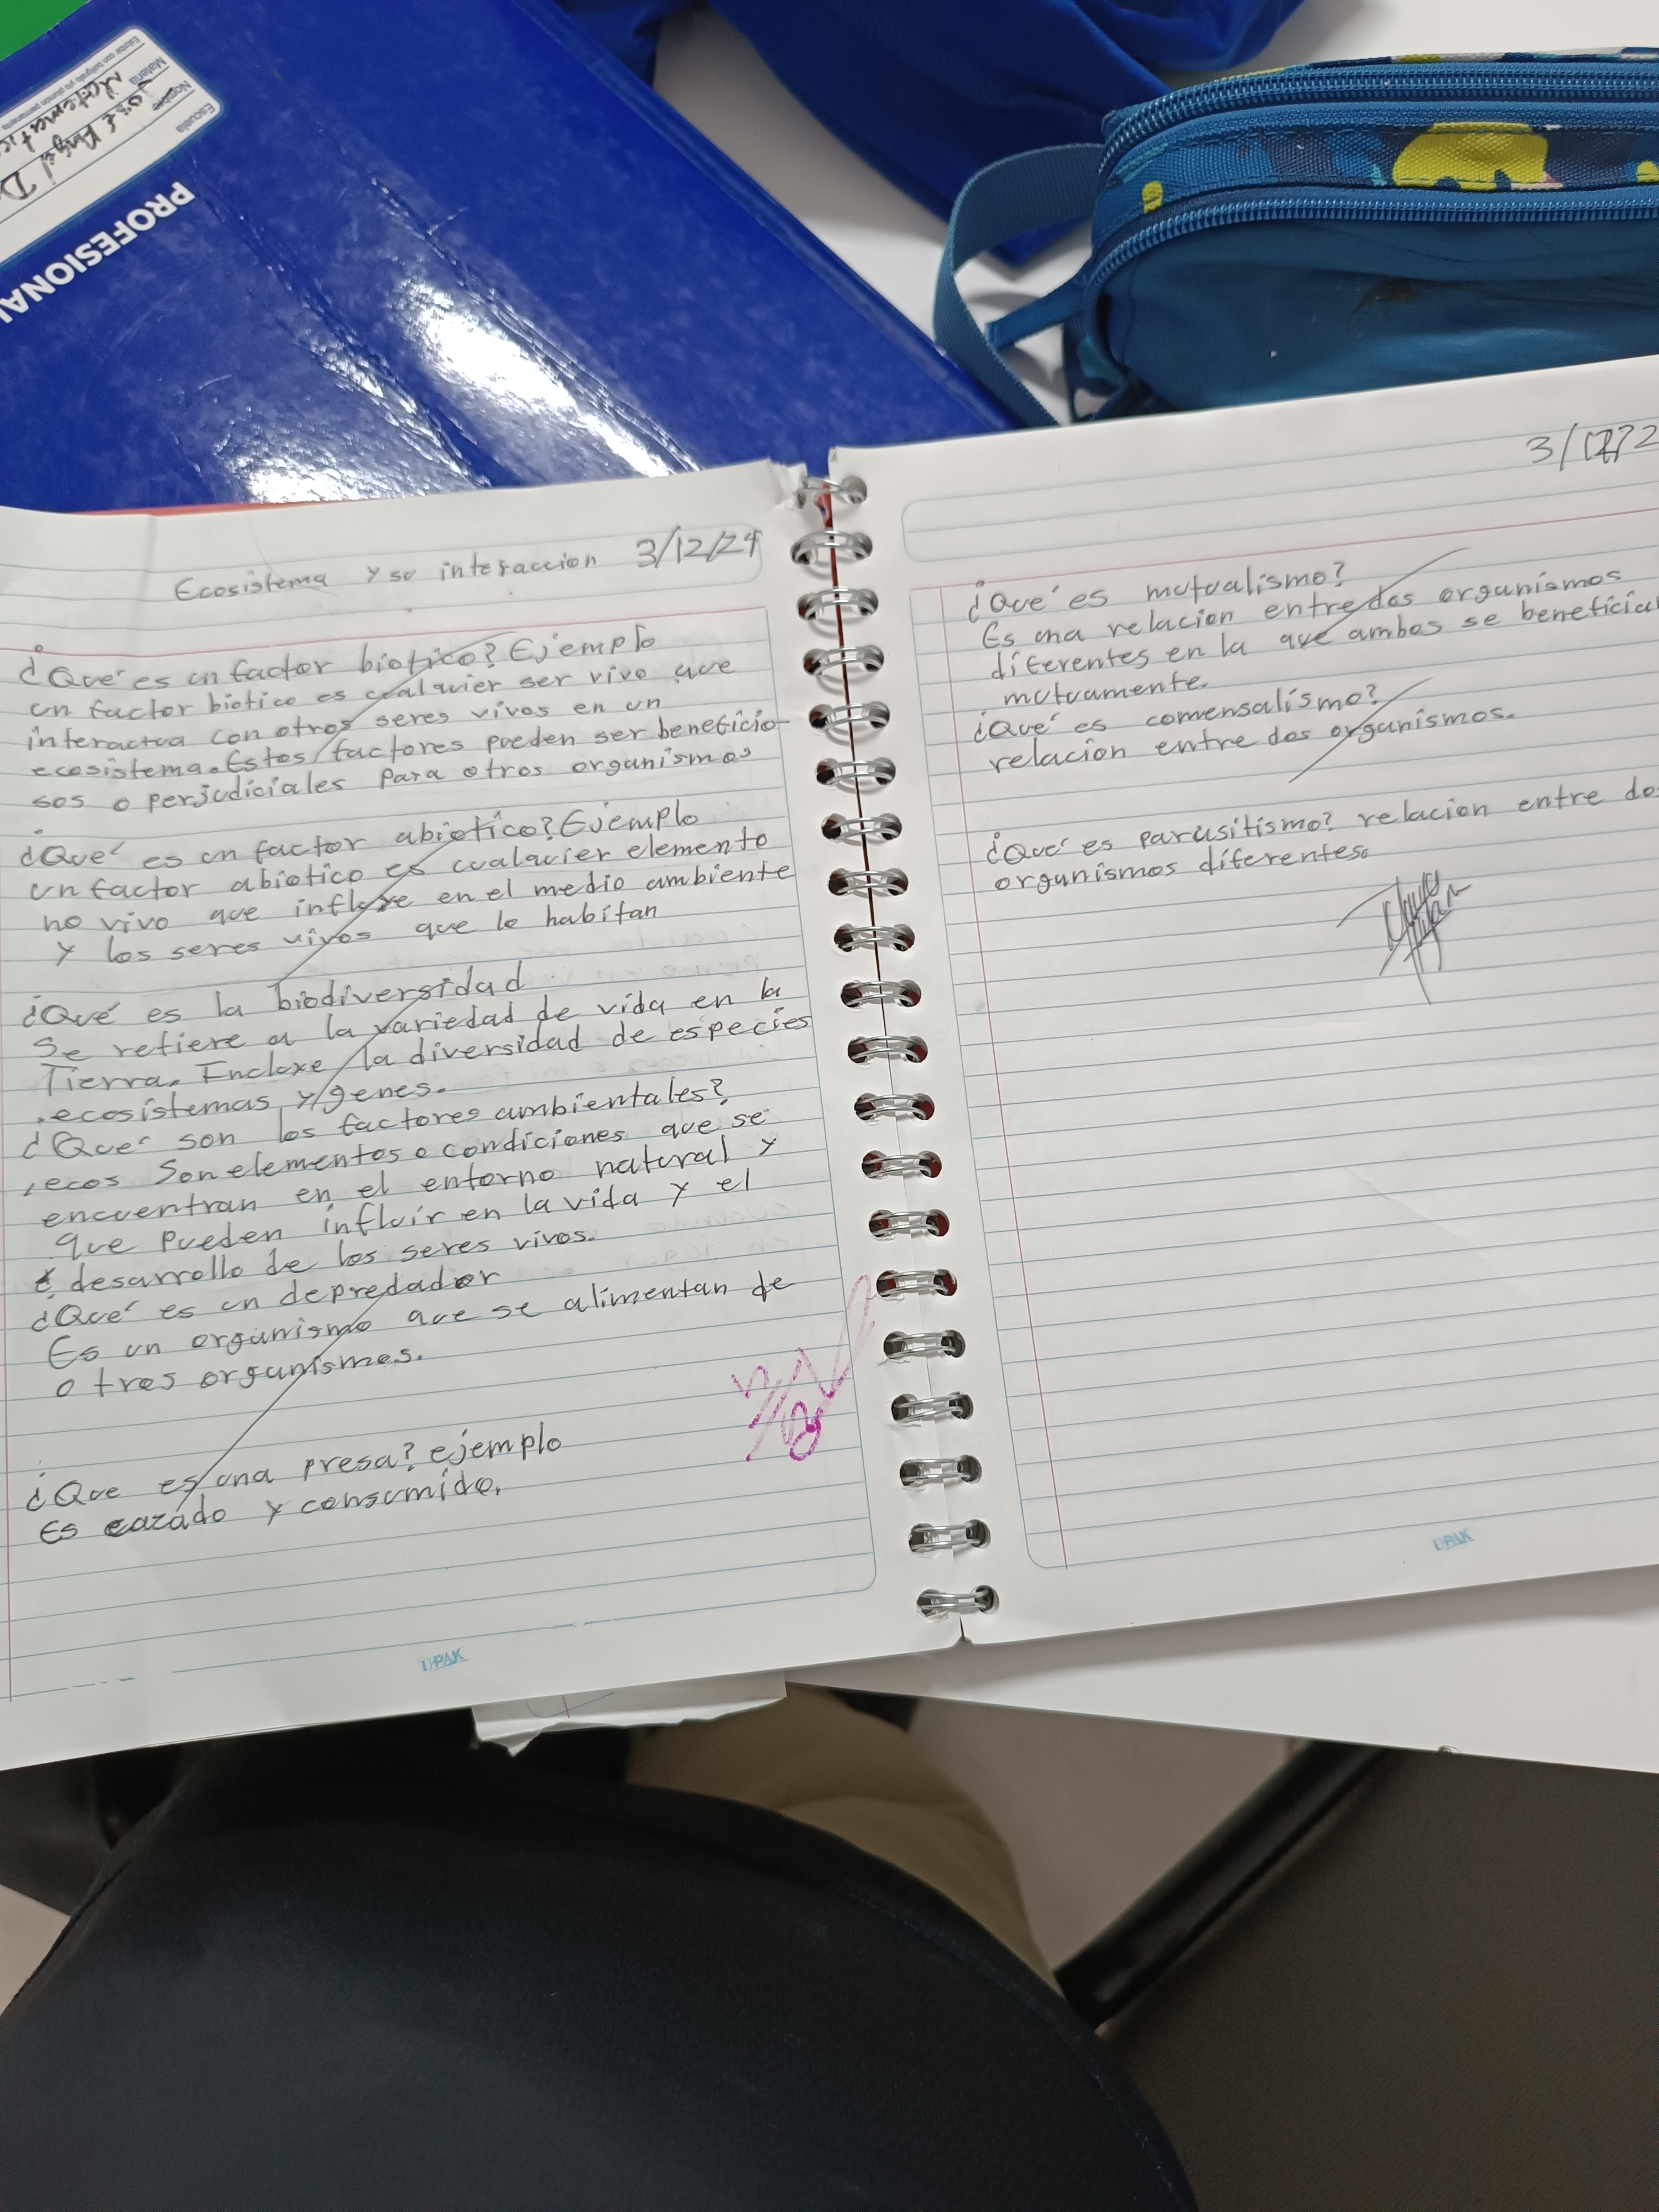 Escuela
Nombre
Materia
PROFESIONAL
Ecosistema y su interaccion 3/12/24
¿Qué es un factor biotico? Ejemplo
un factor biotico es cualquier ser vivo que
interactua con otros seres vivos en un
ecosistema. Estos factores pueden ser beneficio-
sos o perjudiciales para otros organismos
¿Qué es un factor abiotico? Ejemplo
un factor abiotico es cualquier elemento
no vivo que influye en el medio ambiente
y los seres vivos que lo habitan
¿Qué es la biodiversidad
Se refiere a la variedad de vida en la
Tierra. Incluye la diversidad de especies
ecosistemas y genes.
¿Qué son los factores ambientales?
ecos Son elementos o condiciones que se
encuentran en el entorno natural y
que pueden influir en la vida y el
desarrollo de los seres vivos.
¿Qué es un depredador
Es un organismo que se alimentan de
otros organismos.
¿Que es una presa? ejemplo
Es cazado y consumido.
UPAK
¿Qué es mutualismo?
Es una relacion entre dos organismos
diferentes en la que ambos se benefician
mutuamente.
¿Qué es comensalismo?
relacion entre dos organismos.
¿Qué es parasitismo? relacion entre dos
organismos diferentes.
UPAK